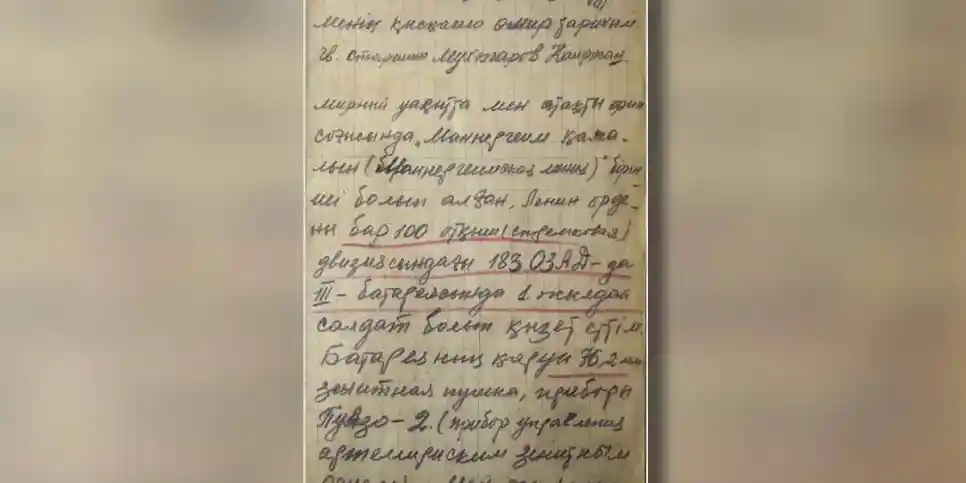 менің қысқаша өмир зарисым
гв. старшина Мухтаров Каиржан.
мирный уақытта мен атақты фин
соғысында „Маннергеим қама-
лын (Маннергеимская линия)" бірин
ші болып алған, Ленин орде-
ны бар 100 атқыш (стрелковая)
двизиясындағы 183 ОЗАД-да
III - батареясында 1 жылдай
салдат болып қызет еттім.
Батареяның қаруи 76,2 мм
зенитная пушка, приборы
Пуазо-2. (прибор управления
артеллириским зенитным